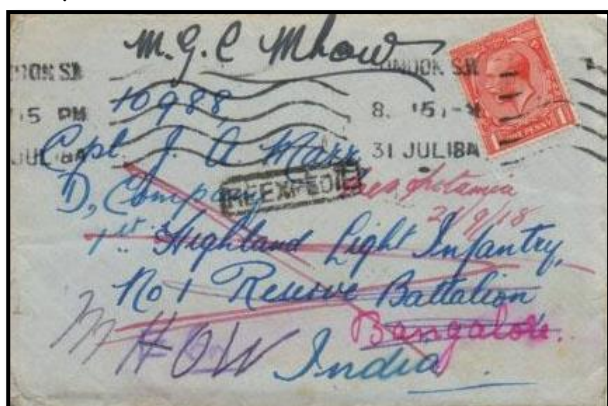 M.G.C Mhow
8. 15 PM
31 JUL 18A
ONE PENNY
10988
Cpl J. A Marr
D, Company
REEXPEDIE
Mesopotamia
2/9/18
1st Highland Light Infantry,
No 1 Reserve Battalion
Bangalore.
MHOW India